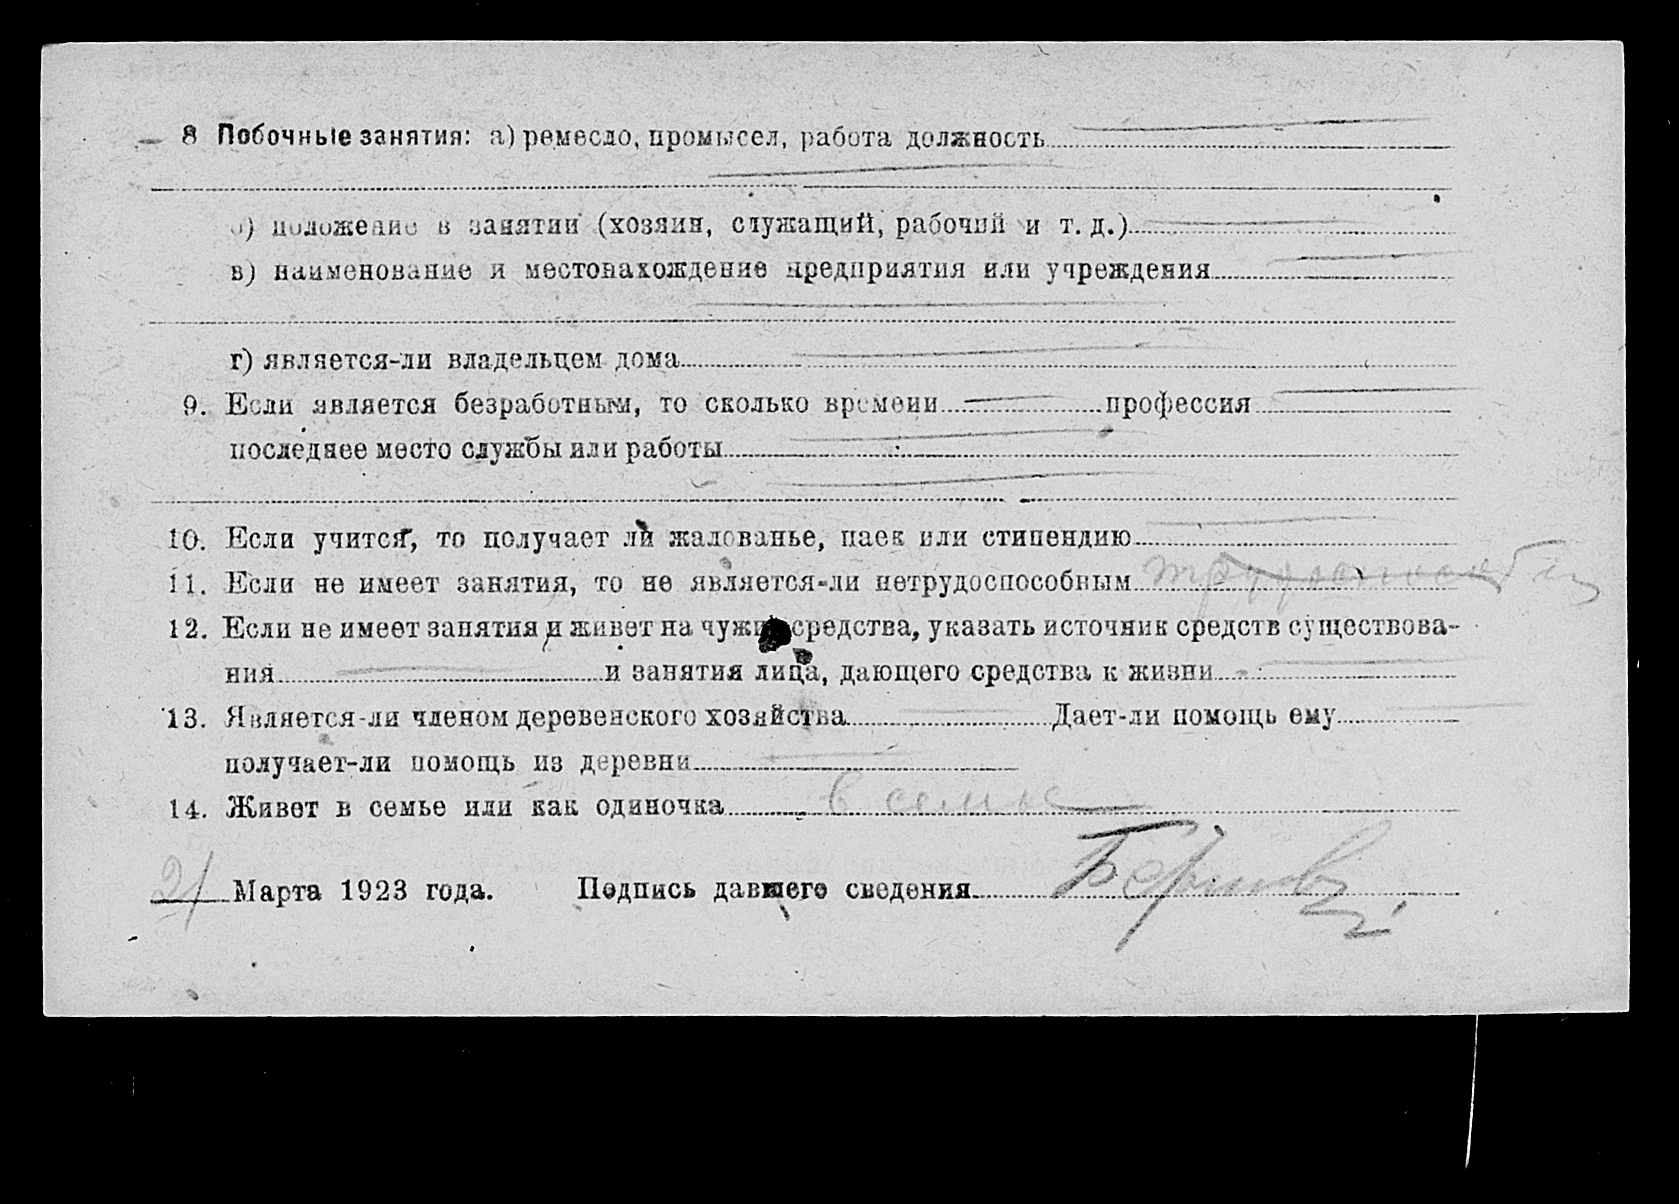 8 Побочные занятия: а) ремесло, промысел, работа должность
б) положение в занятии (хозяин, служащий, рабочий и т. д.)
в) наименование и местонахождение предприятия или учреждения
г) является-ли владельцем дома
9. Если является безработным, то сколько времени профессия
последнее место службы или работы
10. Если учится, то получает ли жалованье, паек или стипендию
11. Если не имеет занятия, то не является-ли нетрудоспособным
12. Если не имеет занятия и живет на чужие средства, указать источник средств существова-
ния и занятия лица, дающего средства к жизни
13. Является-ли членом деревенского хозяйства Дает-ли помощь ему
получает-ли помощь из деревни
14. Живет в семье или как одиночка в семье
21 Марта 1923 года. Подпись давшего сведения